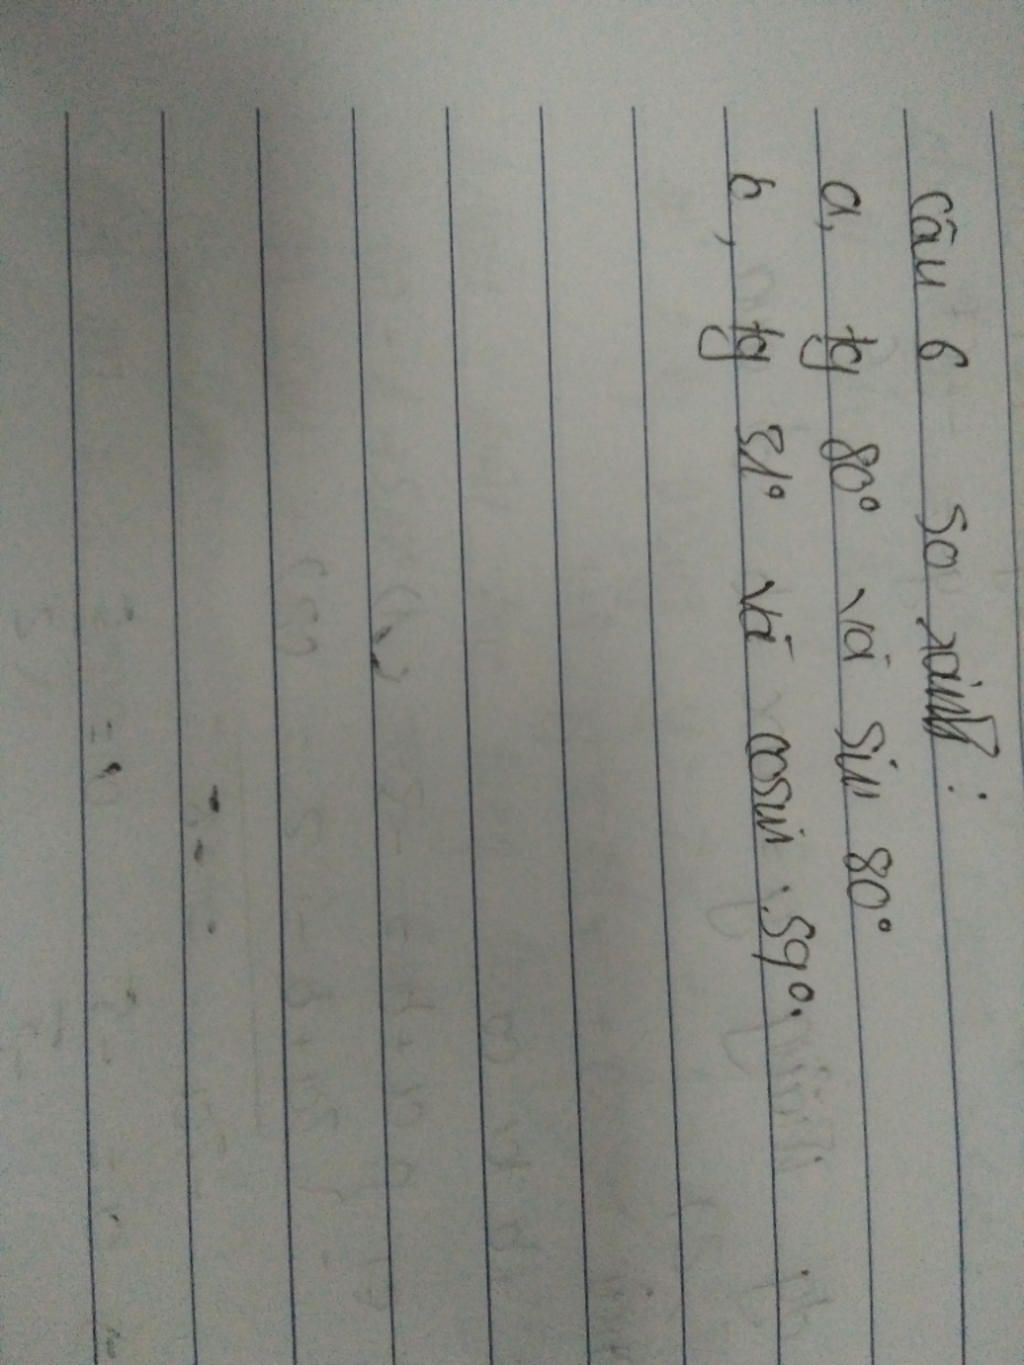 Câu 6 so sánh :
a, tg 80° và sin 80°
b, tg 31° và cosin 59°.